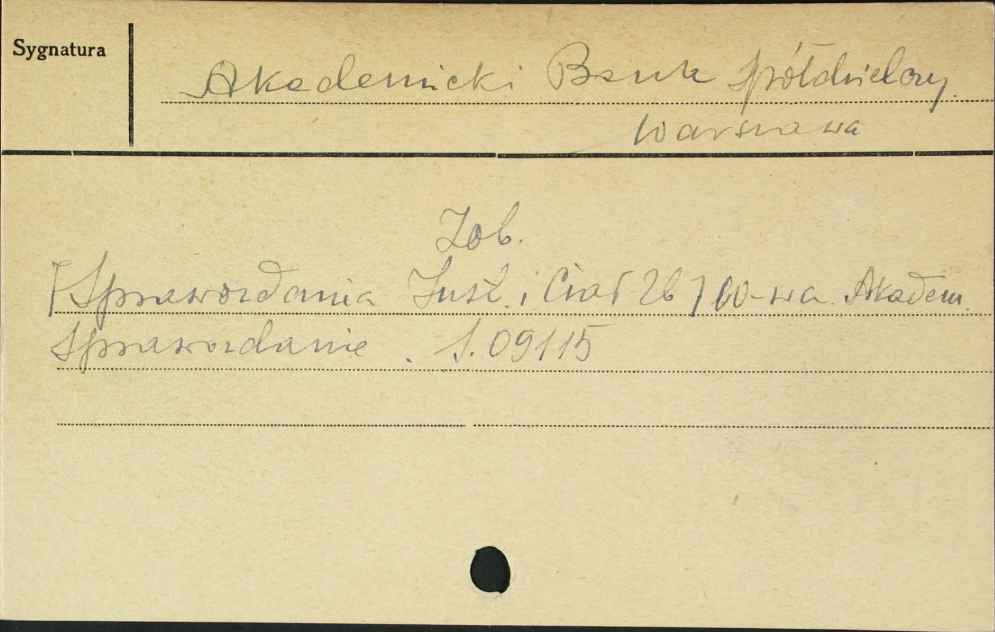 Sygnatura
Akademicki Bank Spółdzielczy.
Warszawa
Zob.
[Sprawozdania Inst. i Ciał 26] W-wa. Akadem.
Sprawozdanie . S.09115